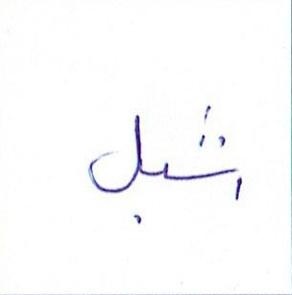 اشبل